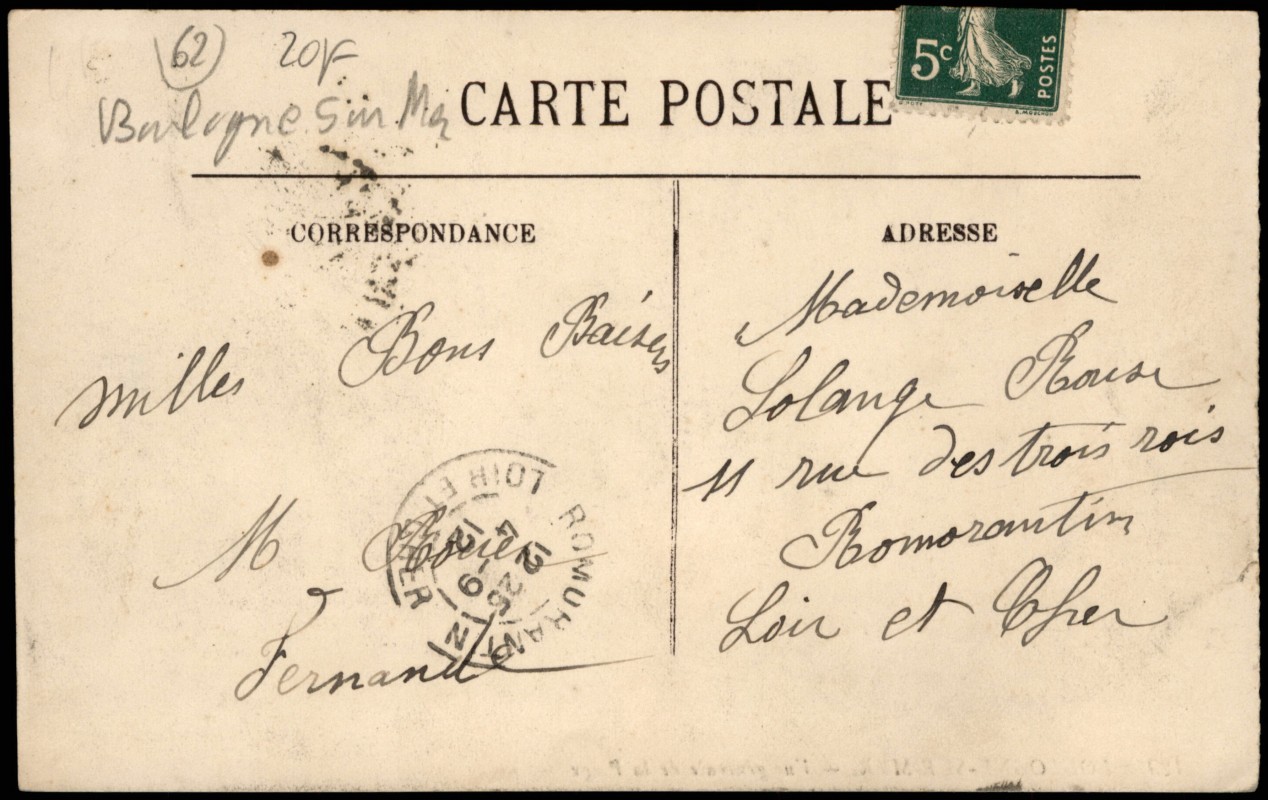 62 20f
Boulogne Sur Mer
CARTE POSTALE
5c POSTES
CORRESPONDANCE
milles Bons Baisers
M
Fernande
ROMORANTIN
LOIR ET CHER
ADRESSE
Mademoiselle
Solange Rouse
11 rue des trois rois
Romorantin
Loir et Cher